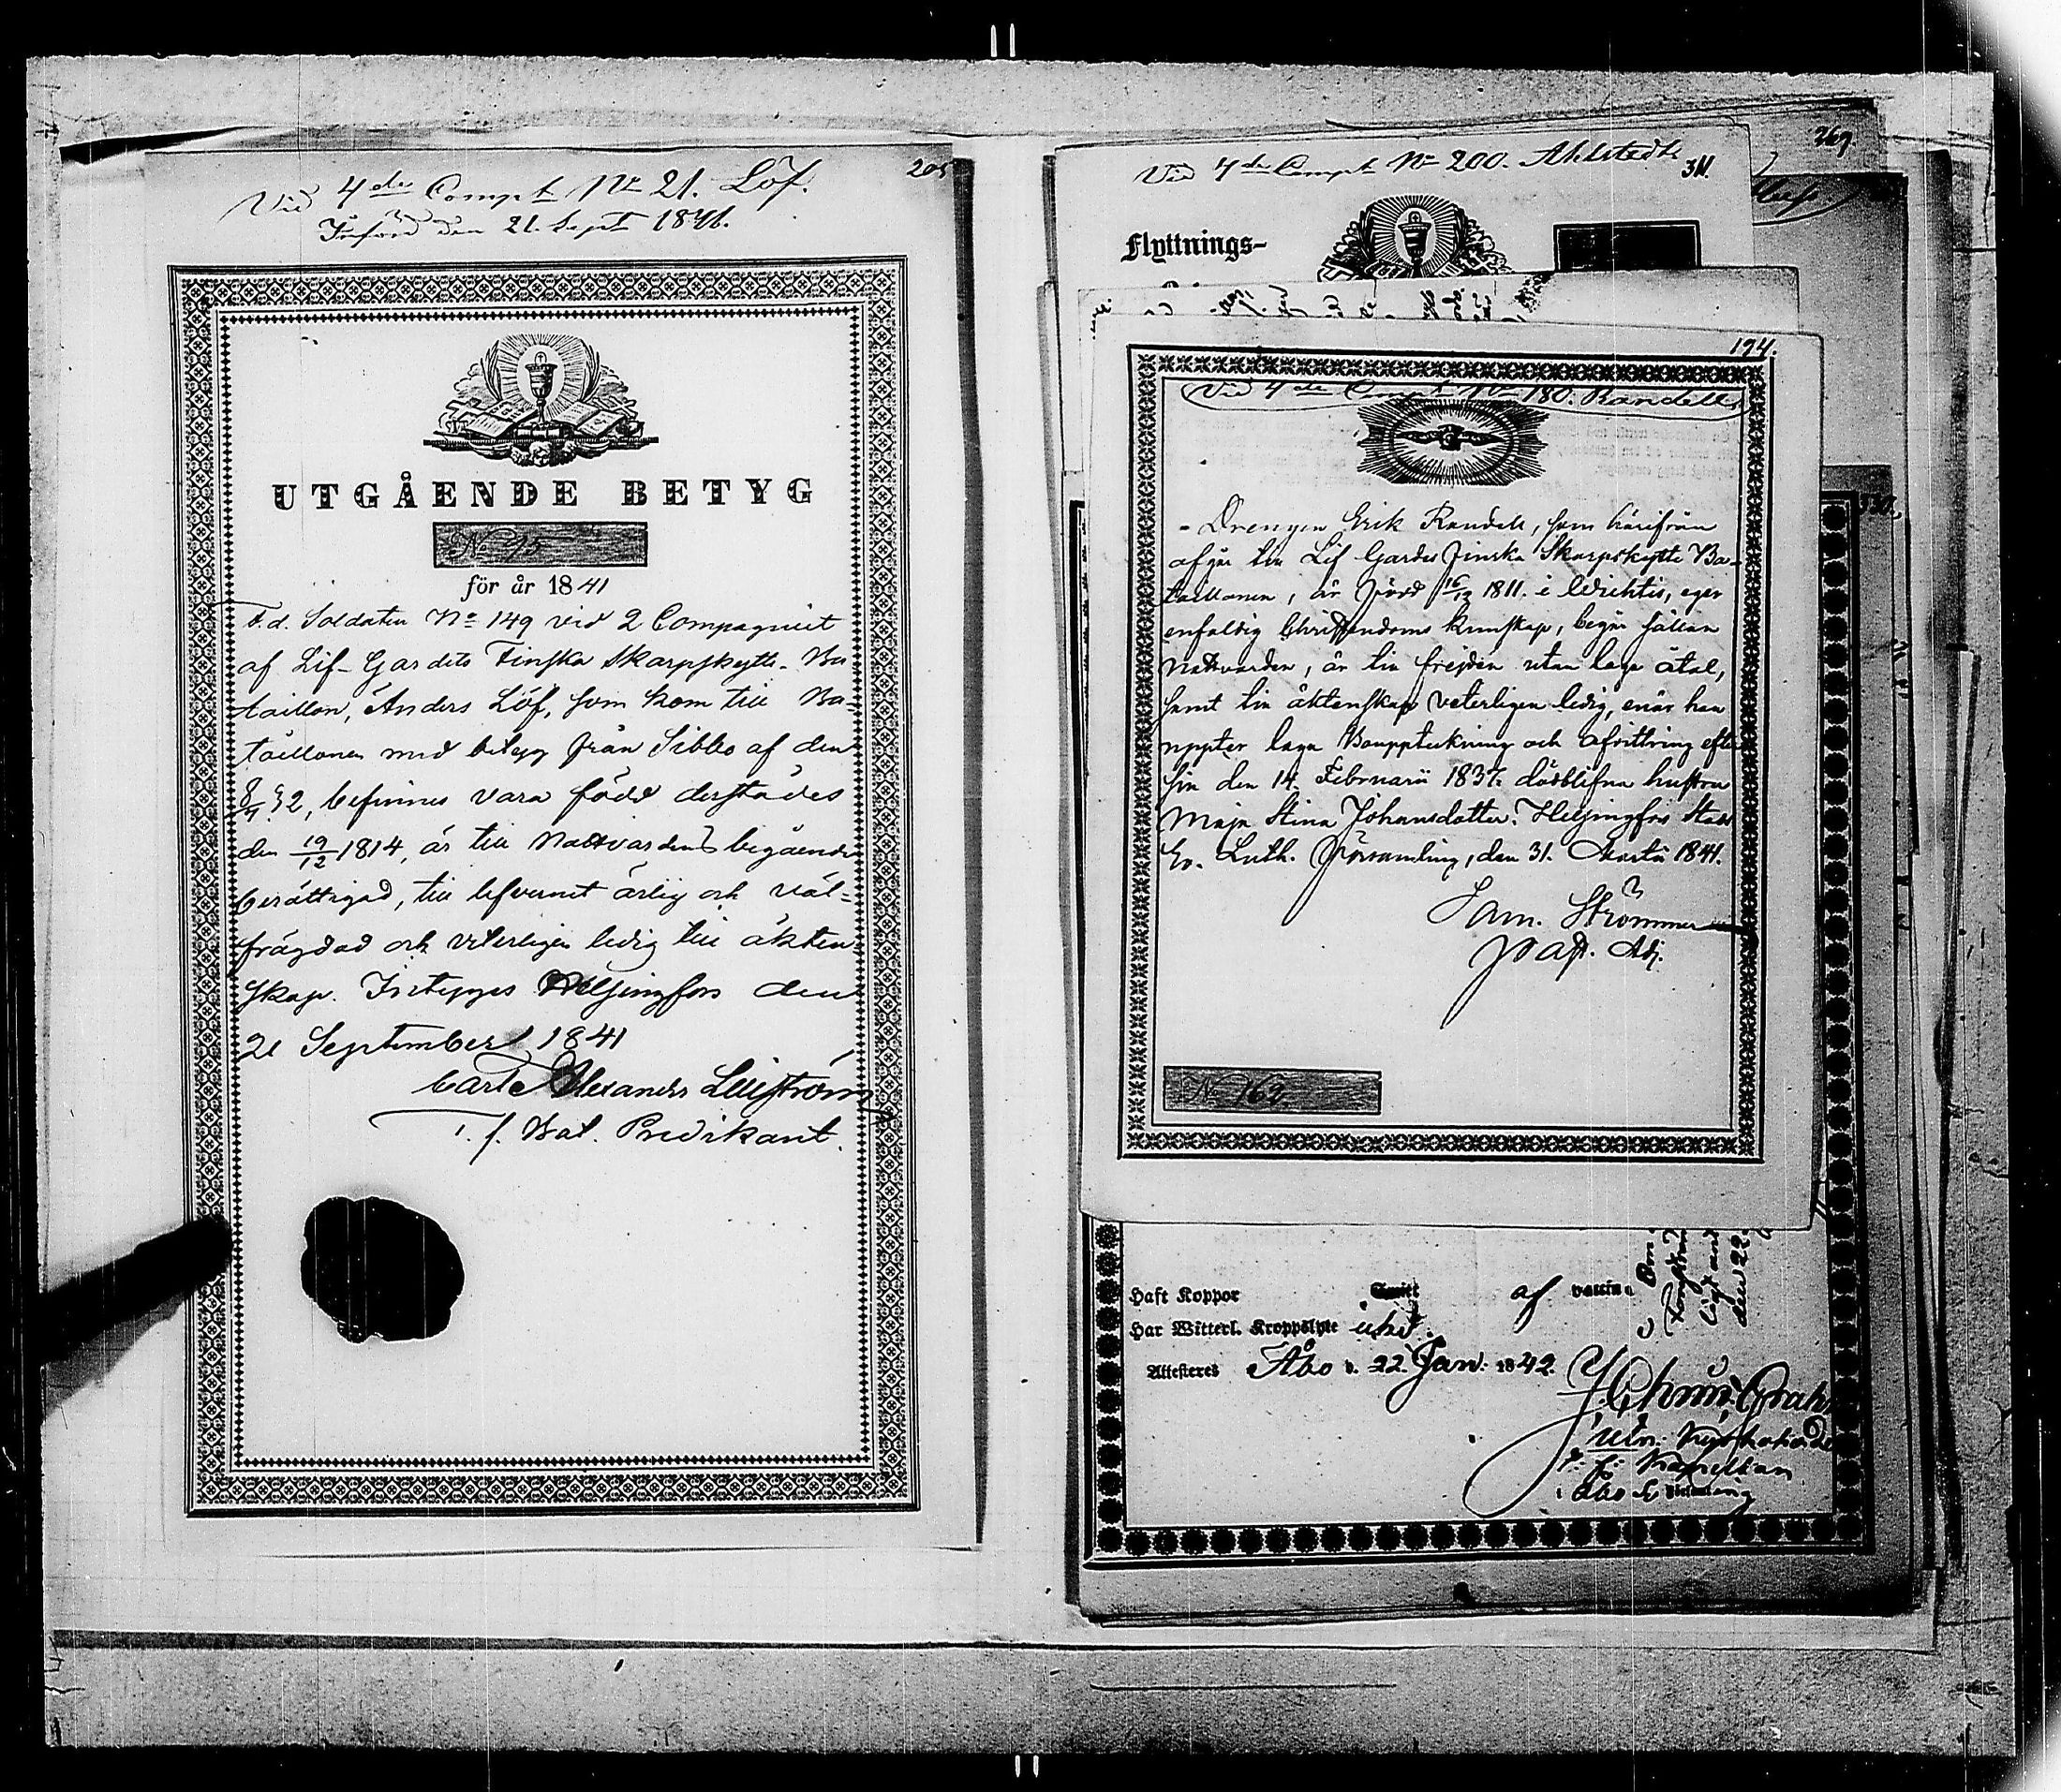 205
Vid 4de Comp t No 21. Löf.
Införd den 21. Sept 1841.
UTGÅENDE BETYG
No 95
för år 1841
F.d. Soldaten No 149 vid 2 Compagniet
af Lif-Gardets Finska Skarpskytte-Ba
taillon, Anders Löf, som kom till Ba-
taillonen med betyg från Sibbo af den
32, befinnes vara född derstädes
den 19/12 1814, är till Nattvardens begående
berättigad, till lefvernet ärlig och väl-
frägdad och veterligen ledig till äkten-
skap. Helsingfors den
21 September 1841
Carl Alexander
T. f. Bat. Predikant.
Vid 4de Comp t No 200. Ahlstedt
311.
269
Flyttnings-
194.
Vid 4de Comp t No 180. Randell
- Drengen Erik Randell, som härifrån
afgår till Lif Gardes Finska Skarpskytte Ba-
taillonen, är född 16/12 1811. i Wichtis, eger
enfaldig Christendoms kunskap, begår sällan
Nattvarden, är till frejden utan laga åtal,
samt till äktenskap veterligen ledig, enär han
uppter laga Bouppteckning och afvittring efter
sin den 14. Februarii 1837. dödblifna hustru
Maja Stina Johansdotter. Helsingfors Stads
Ev. Luth. Församling, den 31. Martii 1841.
Sam. Strömmer
Past. Adj.
No 162
330.
Haft Koppor af vaccin
Har Witterl. Kroppslyte
Attesteres Åbo d. 22 Jan: 1842
den 22